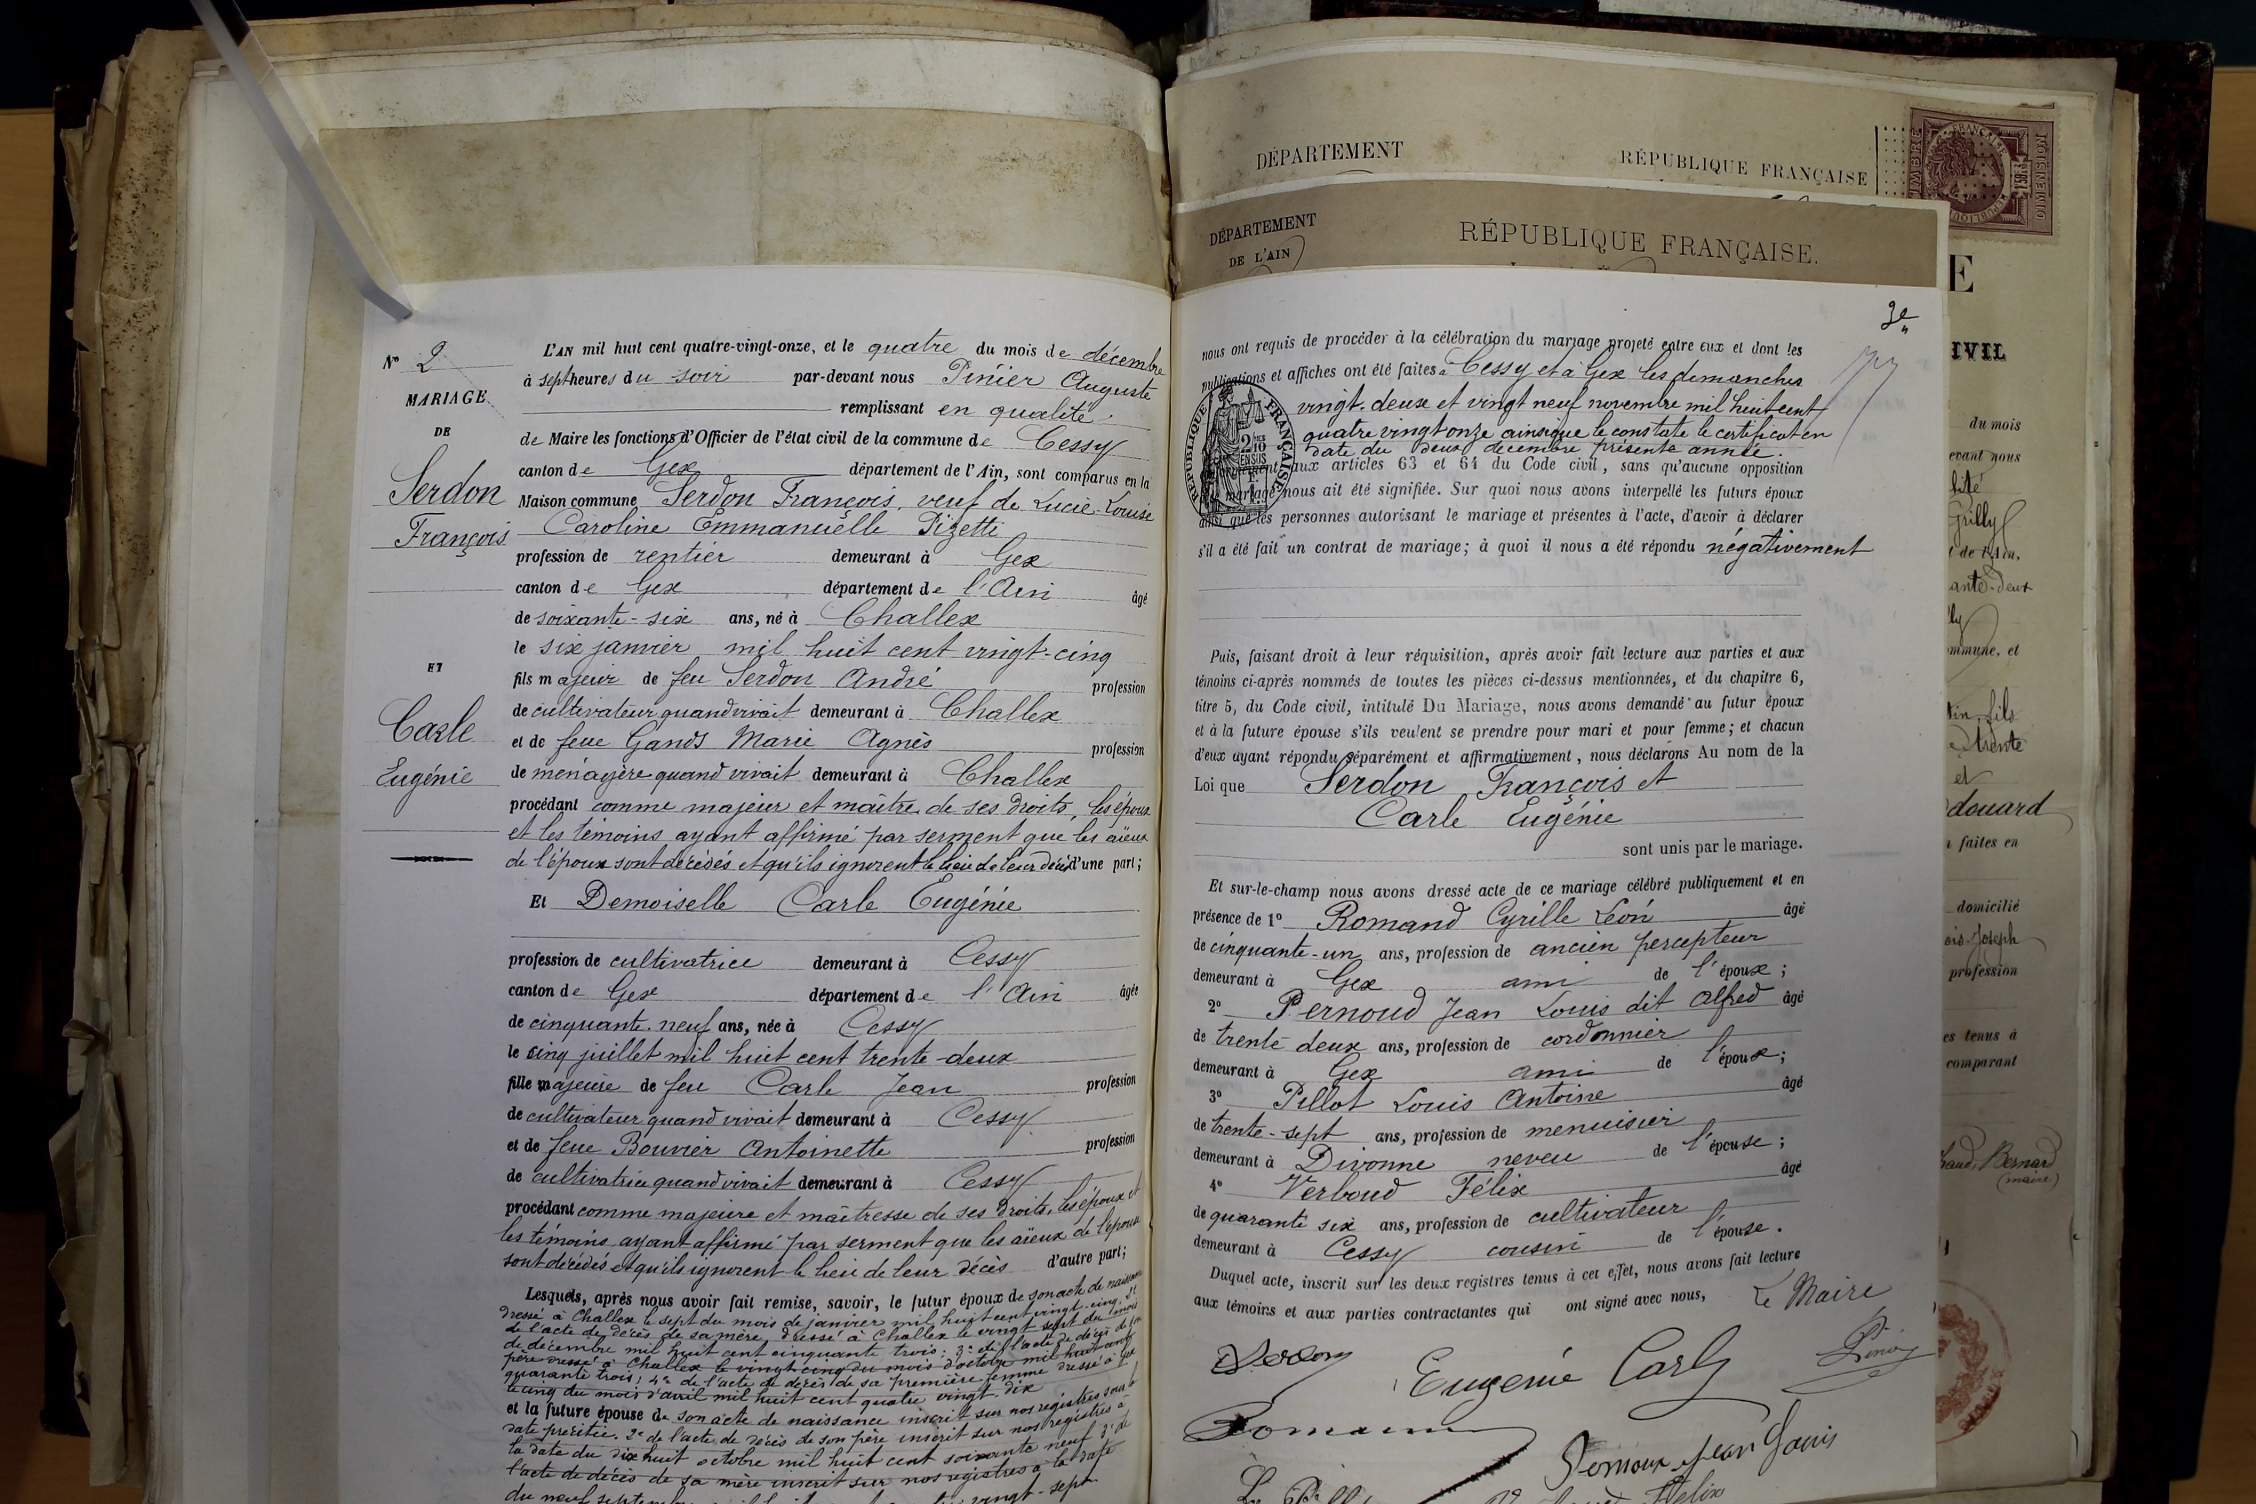 N° 2
MARIAGE
DE
Serdon
François
ET
Carle
Eugénie
L'AN mil huit cent quatre-vingt-onze, et le quatre du mois de décembre
à sept heures du soir par-devant nous Pinier Auguste
remplissant en qualité
de Maire les fonctions d'Officier de l'état civil de la commune de Cessy
canton de Gex département de l'Ain, sont comparus en la
Maison commune Serdon François, veuf de Lucie-Louise
Caroline Emmanuelle Pizetti
profession de rentier demeurant à Gex
canton de Gex département de l'Ain âgé
de soixante-six ans, né à Challex
le six janvier mil huit cent vingt-cinq
fils majeur de feu Serdon André profession
de cultivateur quand vivait demeurant à Challex
et de feue Gands Marie Agnès profession
de ménagère quand vivait demeurant à Challex
procédant comme majeur et maître de ses droits, les époux
et les témoins ayant affirmé par serment que les aïeux
de l'époux sont décédés et qu'ils ignorent le lieu de leur décès d'une part;
Et Demoiselle Carle Eugénie
profession de cultivatrice demeurant à Cessy
canton de Gex département de l'Ain âgée
de cinquante-neuf ans, née à Cessy
le cinq juillet mil huit cent trente-deux
fille majeure de feu Carle Jean profession
de cultivateur quand vivait demeurant à Cessy
et de feue Bouvier Antoinette profession
de cultivatrice quand vivait demeurant à Cessy
procédant comme majeure et maîtresse de ses droits, les époux et
les témoins ayant affirmé par serment que les aïeux de l'épouse
sont décédés et qu'ils ignorent le lieu de leur décès d'autre part;
Lesquels, après nous avoir fait remise, savoir, le futur époux de son acte de naissance
dressé à Challex le sept du mois de janvier mil huit cent vingt-cinq, 2°
de l'acte de décès de sa mère dressé à Challex le vingt sept du mois
de décembre mil huit cent cinquante trois; 3° de l'acte de décès de son
père dressé à Challex le vingt cinq du mois d'octobre mil huit cent
quarante trois; 4° de l'acte de décès de sa première femme dressé à Gex
le cinq du mois d'avril mil huit cent quatre vingt dix
et la future épouse de son acte de naissance inscrit sur nos registres sous la
date précitée. 2° de l'acte de décès de son père inscrit sur nos registres à
la date du dix huit octobre mil huit cent soixante neuf 3° de
l'acte de décès de sa mère inscrit sur nos registres à la date
du neuf septembre vingt-sept
DÉPARTEMENT
RÉPUBLIQUE FRANÇAISE
DÉPARTEMENT
DE L'AIN
RÉPUBLIQUE FRANÇAISE.
nous ont requis de procéder à la célébration du mariage projeté entre eux et dont les
publications et affiches ont été faites à Cessy et à Gex les dimanches
vingt-deux et vingt neuf novembre mil huit cent
quatre vingt onze ainsi que le constate le certificat en
date du deux décembre présente année.
aux articles 63 et 64 du Code civil, sans qu'aucune opposition
mariage nous ait été signifiée. Sur quoi nous avons interpellé les futurs époux
ainsi que les personnes autorisant le mariage et présentes à l'acte, d'avoir à déclarer
s'il a été fait un contrat de mariage; à quoi il nous a été répondu négativement
Puis, faisant droit à leur réquisition, après avoir fait lecture aux parties et aux
témoins ci-après nommés de toutes les pièces ci-dessus mentionnées, et du chapitre 6,
titre 5, du Code civil, intitulé Du Mariage, nous avons demandé au futur époux
et à la future épouse s'ils veulent se prendre pour mari et pour femme; et chacun
d'eux ayant répondu séparément et affirmativement, nous déclarons Au nom de la
Loi que Serdon François et
Carle Eugénie
sont unis par le mariage.
Et sur-le-champ nous avons dressé acte de ce mariage célébré publiquement et en
présence de 1° Romand Cyrille Léon âgé
de cinquante-un ans, profession de ancien percepteur
demeurant à Gex ami de l'époux;
2° Pernoud Jean Louis dit Alfred âgé
de trente deux ans, profession de cordonnier
demeurant à Gex ami de l'époux;
3° Pillot Louis Antoine âgé
de trente-sept ans, profession de menuisier
demeurant à Divonne neveu de l'épouse;
4° Verboud Félix âgé
de quarante six ans, profession de cultivateur
demeurant à Cessy cousin de l'épouse.
Duquel acte, inscrit sur les deux registres tenus à cet effet, nous avons fait lecture
aux témoins et aux parties contractantes qui ont signé avec nous,
Le Maire
Eugénie Carle
Pernoux Jean Louis
RÉPUBLIQUE FRANÇAISE
TIMBRE
DIMENSION
E
IVIL
du mois
evant nous
Grilly
ommune, et
fils
trente
et
douard
faites en
domicilié
Joseph
profession
es tenus à
comparant
Bernard
(maire)